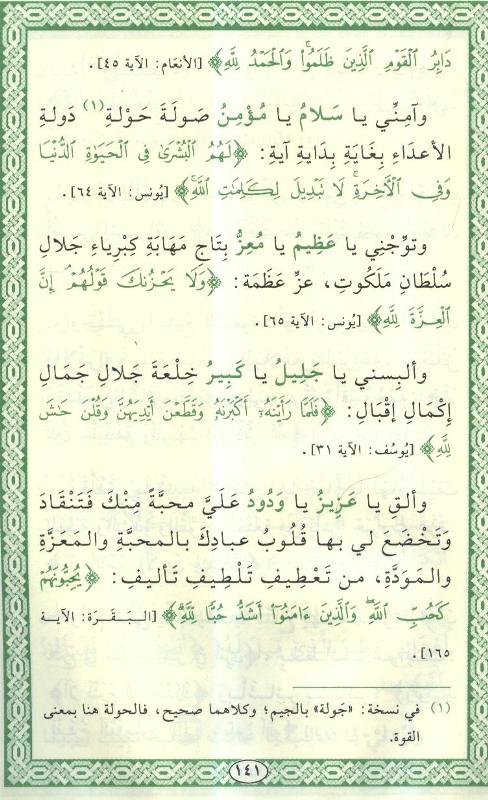 دَابِرُ ٱلْقَوْمِ ٱلَّذِينَ ظَلَمُوا۟ۚ وَٱلْحَمْدُ لِلَّهِ﴾ [الأنعَام: الآية ٤٥].
وآمِنِّي يا سَلامُ يا مُؤْمِنُ صَولَةَ حَوْلةِ(١) دَولةِ
الأعداءِ بِغَايَةِ بِدَايةِ آيَةِ: ﴿لَهُمُ ٱلْبُشْرَىٰ فِى ٱلْحَيَوٰةِ ٱلدُّنْيَا
وَفِى ٱلْـَٔاخِرَةِۚ لَا تَبْدِيلَ لِكَلِمَٰتِ ٱللَّهِۚ﴾ [يُونس: الآية ٦٤].
وتوِّجْنِي يا عَظِيمُ يا مُعِزُّ بِتَاجِ مَهَابَةِ كِبْرِيَاءِ جَلالِ
سُلْطَانِ مَلَكُوتِ، عزِّ عَظَمَة: ﴿وَلَا يَحْزُنكَ قَوْلُهُمْۘ إِنَّ
ٱلْعِزَّةَ لِلَّهِ﴾ [يُونس: الآية ٦٥].
وألبِسني يا جَلِيلُ يا كَبِيرُ خِلْعَةَ جَلالِ جَمَالِ
إكْمَالِ إقْبَالِ: ﴿فَلَمَّا رَأَيْنَهُۥٓ أَكْبَرْنَهُۥ وَقَطَّعْنَ أَيْدِيَهُنَّ وَقُلْنَ حَٰشَ
لِلَّهِ﴾ [يُوسُف: الآية ٣١].
وألقِ يا عَزِيزُ يا وَدُودُ عَلَيَّ محبَّةً مِنْكَ فَتَنْقَادَ
وَتَخْضَعَ لي بها قُلُوبُ عبادِكَ بالمحبَّةِ والمَعَزَّةِ
والمَوَدَّةِ، من تَعْطِيفِ تَلْطِيفِ تَأليفِ: ﴿يُحِبُّونَهُمْ
كَحُبِّ ٱللَّهِۖ وَٱلَّذِينَ ءَامَنُوٓا۟ أَشَدُّ حُبًّا لِّلَّهِۗ﴾ [البَقَرَة: الآية
١٦٥].
(١) في نسخة: «جَولة» بالجيم؛ وكلاهما صحيح، فالحولة هنا بمعنى
القوة.
١٤١